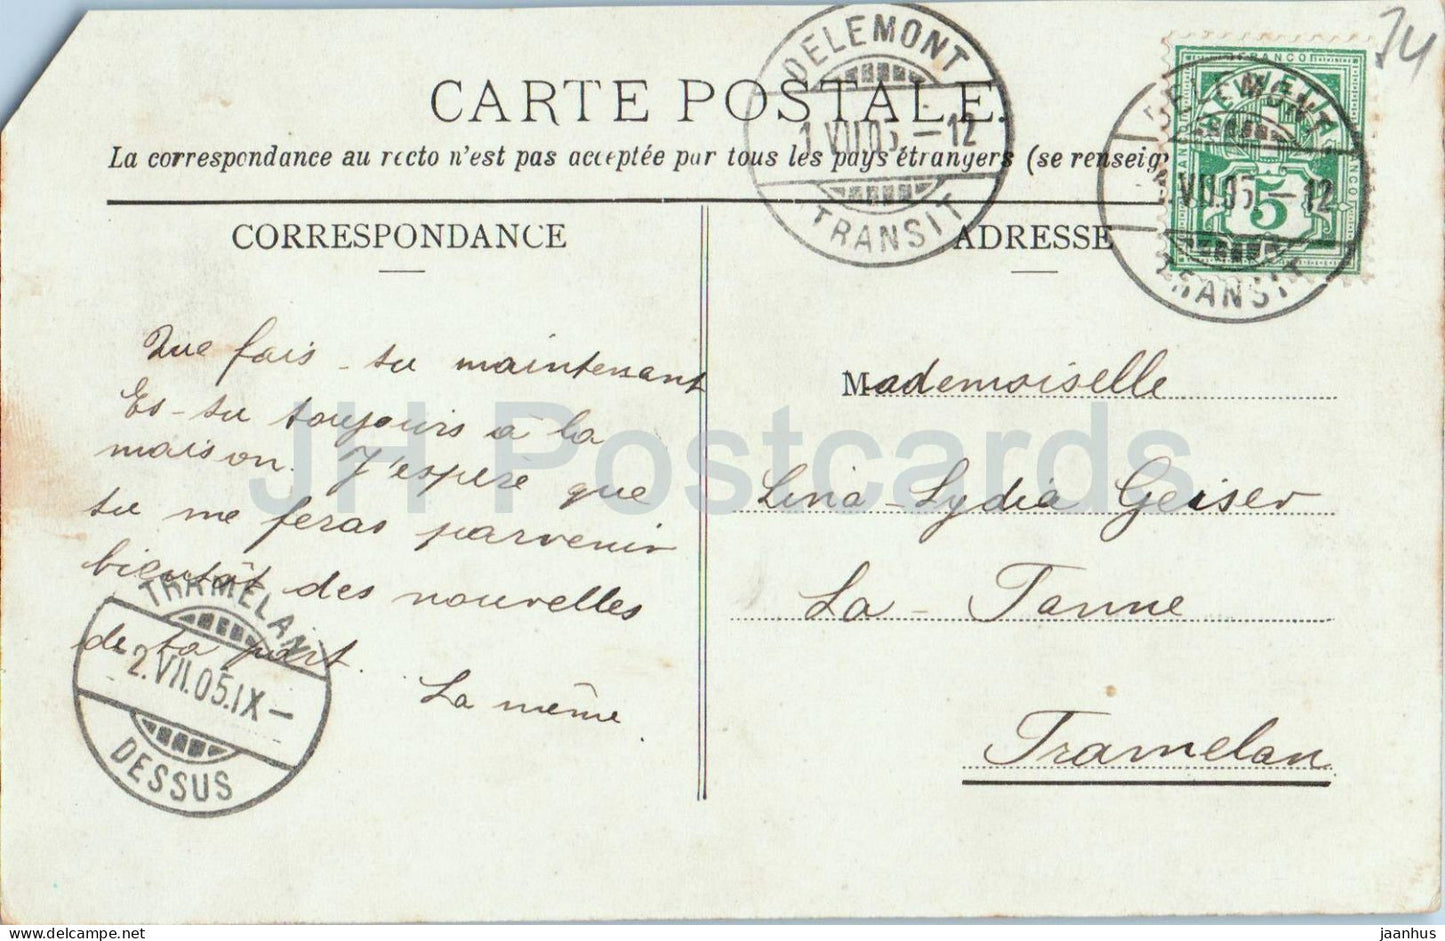 CARTE POSTALE.
La correspondance au recto n'est pas acceptée par tous les pays étrangers (se renseig
CORRESPONDANCE
ADRESSE
DELEMONT
1.VII.05.–12
TRANSIT
DELEMONT
VII.05.–12
TRANSIT
FRANCO
5
34
Que fais-tu maintenant
Es-tu toujours à la
maison. J'espère que
tu me feras parvenir
bientôt des nouvelles
de ta part.
La même
TRAMELAN
2.VII.05.IX–
DESSUS
Mademoiselle
Lina-Lydia Geiser
La-Tanne
Tramelan
JH Postcards
jaanhus